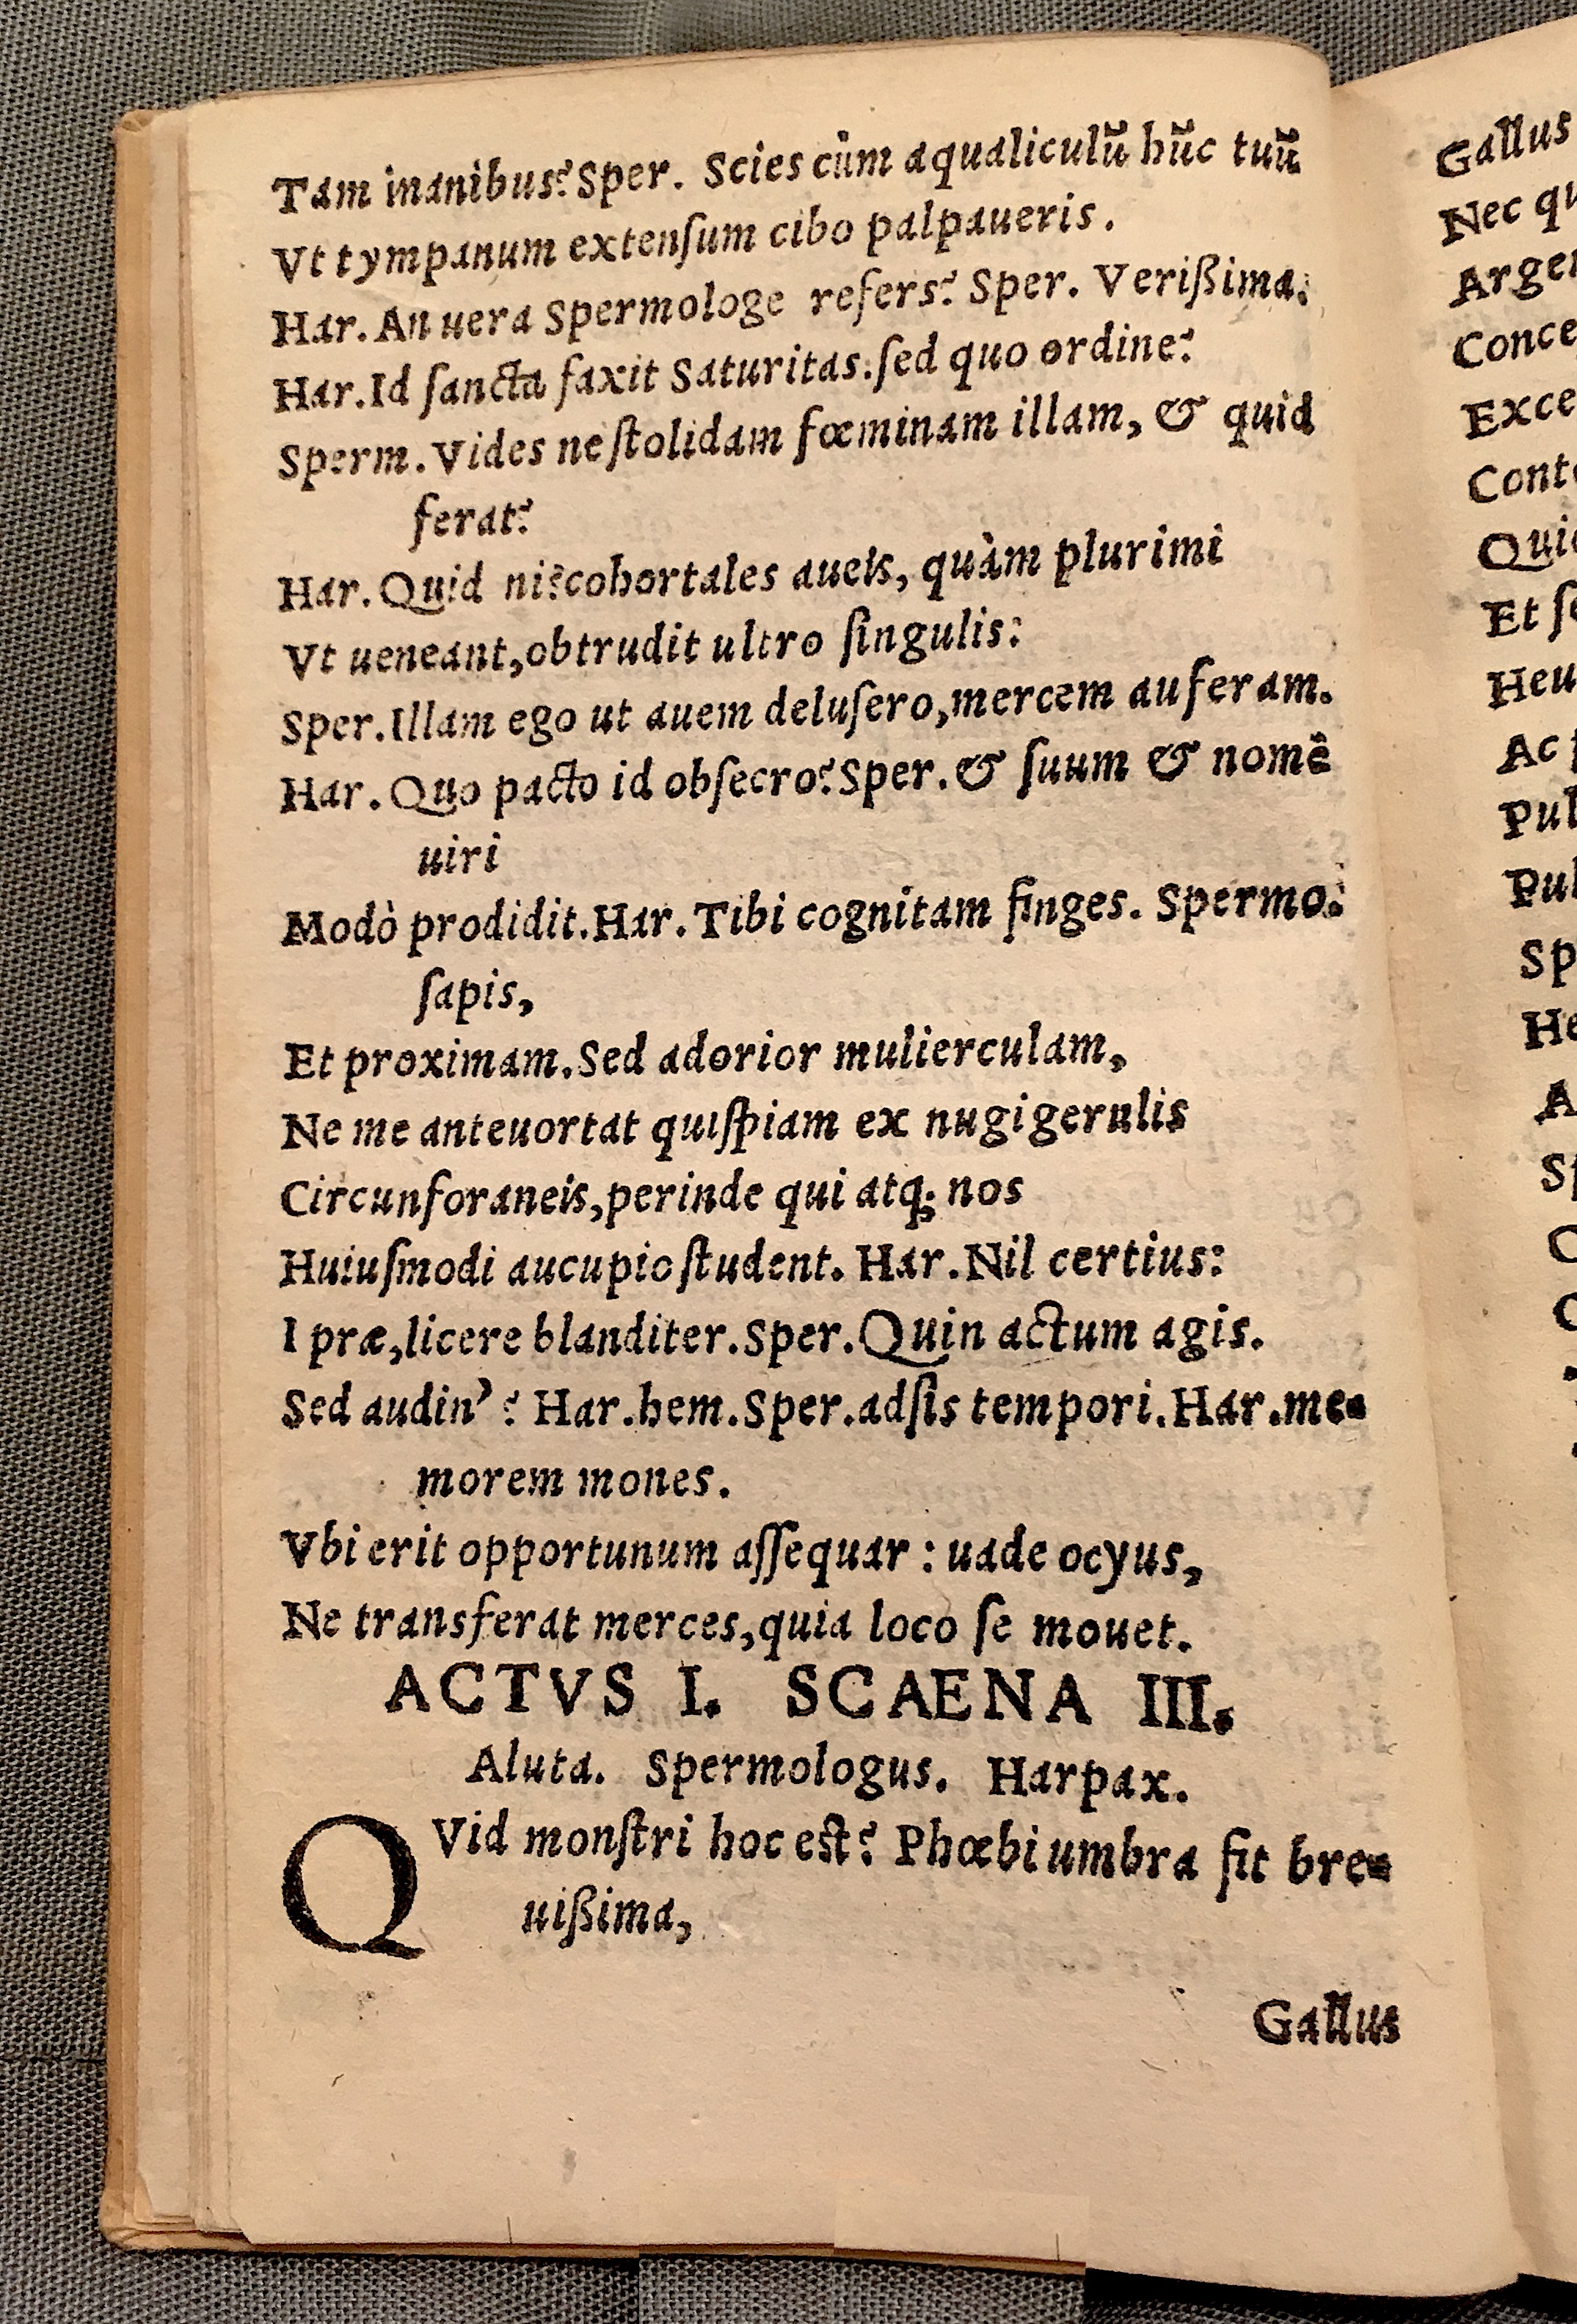 Tam inanibus? Sper. Scies cùm aqualiculũ hũc tuũ
Vt tympanum extenſum cibo palpaueris.
Har. An uera Spermologe refers? Sper. Verißima.
Har. Id ſancta faxit Saturitas: ſed quo ordine?
Sperm. Vides ne ſtolidam fœminam illam, & quid
ferat?
Har. Quid ni? cohortales aueis, quàm plurimi
Vt ueneant, obtrudit ultro ſingulis:
Sper. Illam ego ut auem deluſero, mercem auferam.
Har. Quo pacto id obſecro? Sper. & ſuum & nomẽ
uiri
Modò prodidit. Har. Tibi cognitam finges. Spermo.
ſapis,
Et proximam. Sed adorior mulierculam,
Ne me anteuortat quiſpiam ex nugigerulis
Circunforaneis, perinde qui atq; nos
Huiuſmodi aucupio ſtudent. Har. Nil certius:
I præ, licere blanditer. Sper. Quin actum agis.
Sed audin’? Har. hem. Sper. adſis tempori. Har. me-
morem mones.
Vbi erit opportunum aſſequar: uade ocyus,
Ne transferat merces, quia loco ſe mouet.
ACTVS I. SCAENA III.
Aluta. Spermologus. Harpax.
QVid monſtri hoc eſt? Phœbi umbra fit bre-
uißima,
Gallus
Gallus
Nec
Et
Heu
Ac